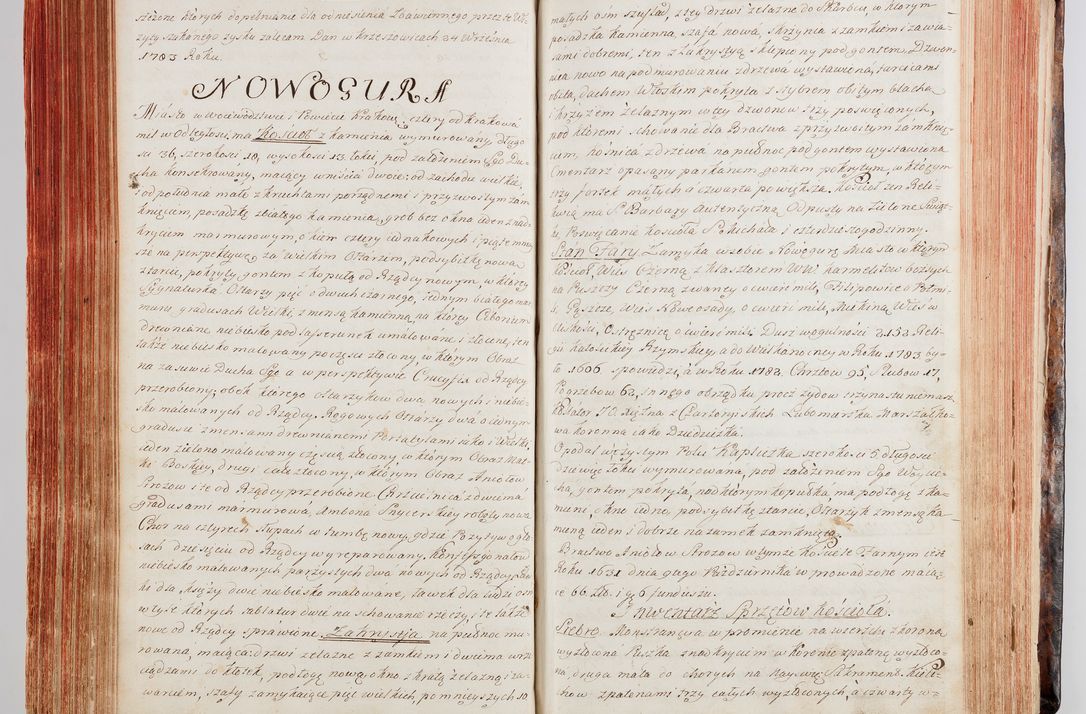 szczone których dopełnianie dla odniesienia zbawiennego przez te Wi-
zyty szukanego zysku zalecam Dan w Krzeszowicach 24 Września
1783 Roku.
NOWOGURA
Miasto w Woiewództwie i Powiecie Krakow: cztery od Krakowa
mil w odległości, ma Kościół z kamienia wymurowany, długo
ści 36, szerokości 18, wysokości 13 łokci, pod założeniem Sgo Du-
cha konsekrowany, maiący wniścia dwoie: od zachodu wielkie,
i od południa małe z kruchtami porządnemi i przyzwoitym zam-
knięciem, posadzkę z białego kamienia, grob bez okna ieden z nad-
kryciem marmurowym, okien cztery iednakowych i piąte mniey-
sze na perspektywę za wielkim Ołtarzem, podsybitkę nową
z tarcic, pokryty gontem z kopułą od Rządcy nowym, w którey
Sygnaturka Ołtarzy pięć o dwuch czarnego, iednym białego mar-
muru gradusach Wielki, z mensą kamienną, na którey Ciborium
drewniane niebiesko pod lasserunek umalowane i złocone, ten
także niebiesko malowany poczęści złocony, w którym Obraz
na zasuwie Ducha Sgo a w perspektywie Crucyfix od Rządcy
przerobiony, obok którego ołtarzyków dwa nowych i niebie-
sko malowanych od Rządcy. Rogowych Ołtarzy dwa o iednym
gradusie z mensami drewnianemi Portatylami iako i Wielki,
ieden zielono malowany częścią złocony w którym Obraz Mat-
ki Boskiey, drugi cale złocony, w którym Obraz Aniołów
Strożow i te od Rządcy przerobione Chrzcielnica z dwiema
gradusami marmurowa, Ambona Snycerskiey roboty nowa
Chor na czterech słupach w tumbę nowy, gdzie Pozytyw o gło-
sach dziesięciu od Rządcy wyreparowany, Konfessyonałow
niebiesko malowanych parzystych dwa nowych od Rządcy, Ław-
ki dla Xięży dwie niebiesko malowane, ławek dla ludzi osm
w tyle których szklatur dwie na schowanie rzeczy, i te także
nowe od Rządcy sprawione, Zakrystya na pułnoc mu-
rowana, maiąca drzwi żelazne z zamkiem i dwiema wrze-
ciądzami do kłotek, podłogę nową, okno z kratą żelazną i za-
warciem, szafy zamykaiące pięć wielkich, pomnieyszych 10
małych ośm szuflad, z tey drzwi żelazne do Skarbcu, w którym
posadzka kamienna, szafa nowa, skrzynia z zamkiem i zawia-
sami dobremi, ten z Zakrystyą sklepiony pod gontem. Dzwon-
nica nowo na podmurowaniu z drzewa wystawiena, tarcicami
obita, dachem Włoskim pokryta z szybrem obitym blachą
i krzyżem żelaznym w tey dzwonow trzy poswięconych,
pod któremi schowanie dla Bractwa z przyzwoitym zamknię-
ciem, kośnica z drzewa na pułnoc pod gontem wystawiona
Cmentarz opasany parkanem gontem pokrytym, w którym
trzy fortek małych a czwarta powiększa, Kościoł ten Reli-
kwią ma S. Barbary autentyczną Odpusty na Zielone Świąt-
ki Poswięcanie kościoła S. Michała i czterdziestogodzinny.
Stan Fary. Zamyka w sobie Nowogurę Miasto w którym
Kościoł, Wieś Czerną z klasztorem WW. karmelitow bossych
na Puszczy Czerną zwaney o ćwierć mile, Filipowice o Połmi-
li, Paczcze, wieś Nowosady, o ćwierć mile, Miękinią Wieś w
bliskości, Ostrężnicę o ćwierć mili Dusz w ogulności 2132 Reli-
gii katolickiey Rzymskiey, a do Wielkanocney w Roku 1783 by-
ło 1606 spowiedzi, a w Roku 1782. Chrztow 95, Slubow 17,
Pogrzebow 62, innego obrządku procz żydow trzynastu niemasz
Kollator JO. Xiężna z Czartoryiskich Lubomirska Marszałko-
wa koronna iako Dziedziczka.
Opodal wczystym Polu Kapliczka szerokości 5 długości
dziewięć łokci wymurowana, pod założeniem Sgo Woycie-
cha, gontem pokryta, nad którym kopułka, ma podłogę z ka-
mieni, okno iedno, podsybitkę z tarcic, Ołtarzyk z mensą ka-
mienną ieden i dobrze na zamek zamknięta.
Bractwo Aniołow Strożow w tymże kościele Farnym iest
Roku 1631 dnia 9ago Paździerznika wprowadzone maią-
ce 66 złt. i g. 6 funduszu.
Inwentarz Sprzętow kościoła.
Srebro Monstrancya w promienie na wierzchu z koroną
wyzłocona Puszka z nadkryciem w koronie z pateną wyzłoco-
na, druga mała do chorych na Nayswię: Sakrament. Kieli-
chow z patenami trzy całych wyzłoconych, a czwarty w-